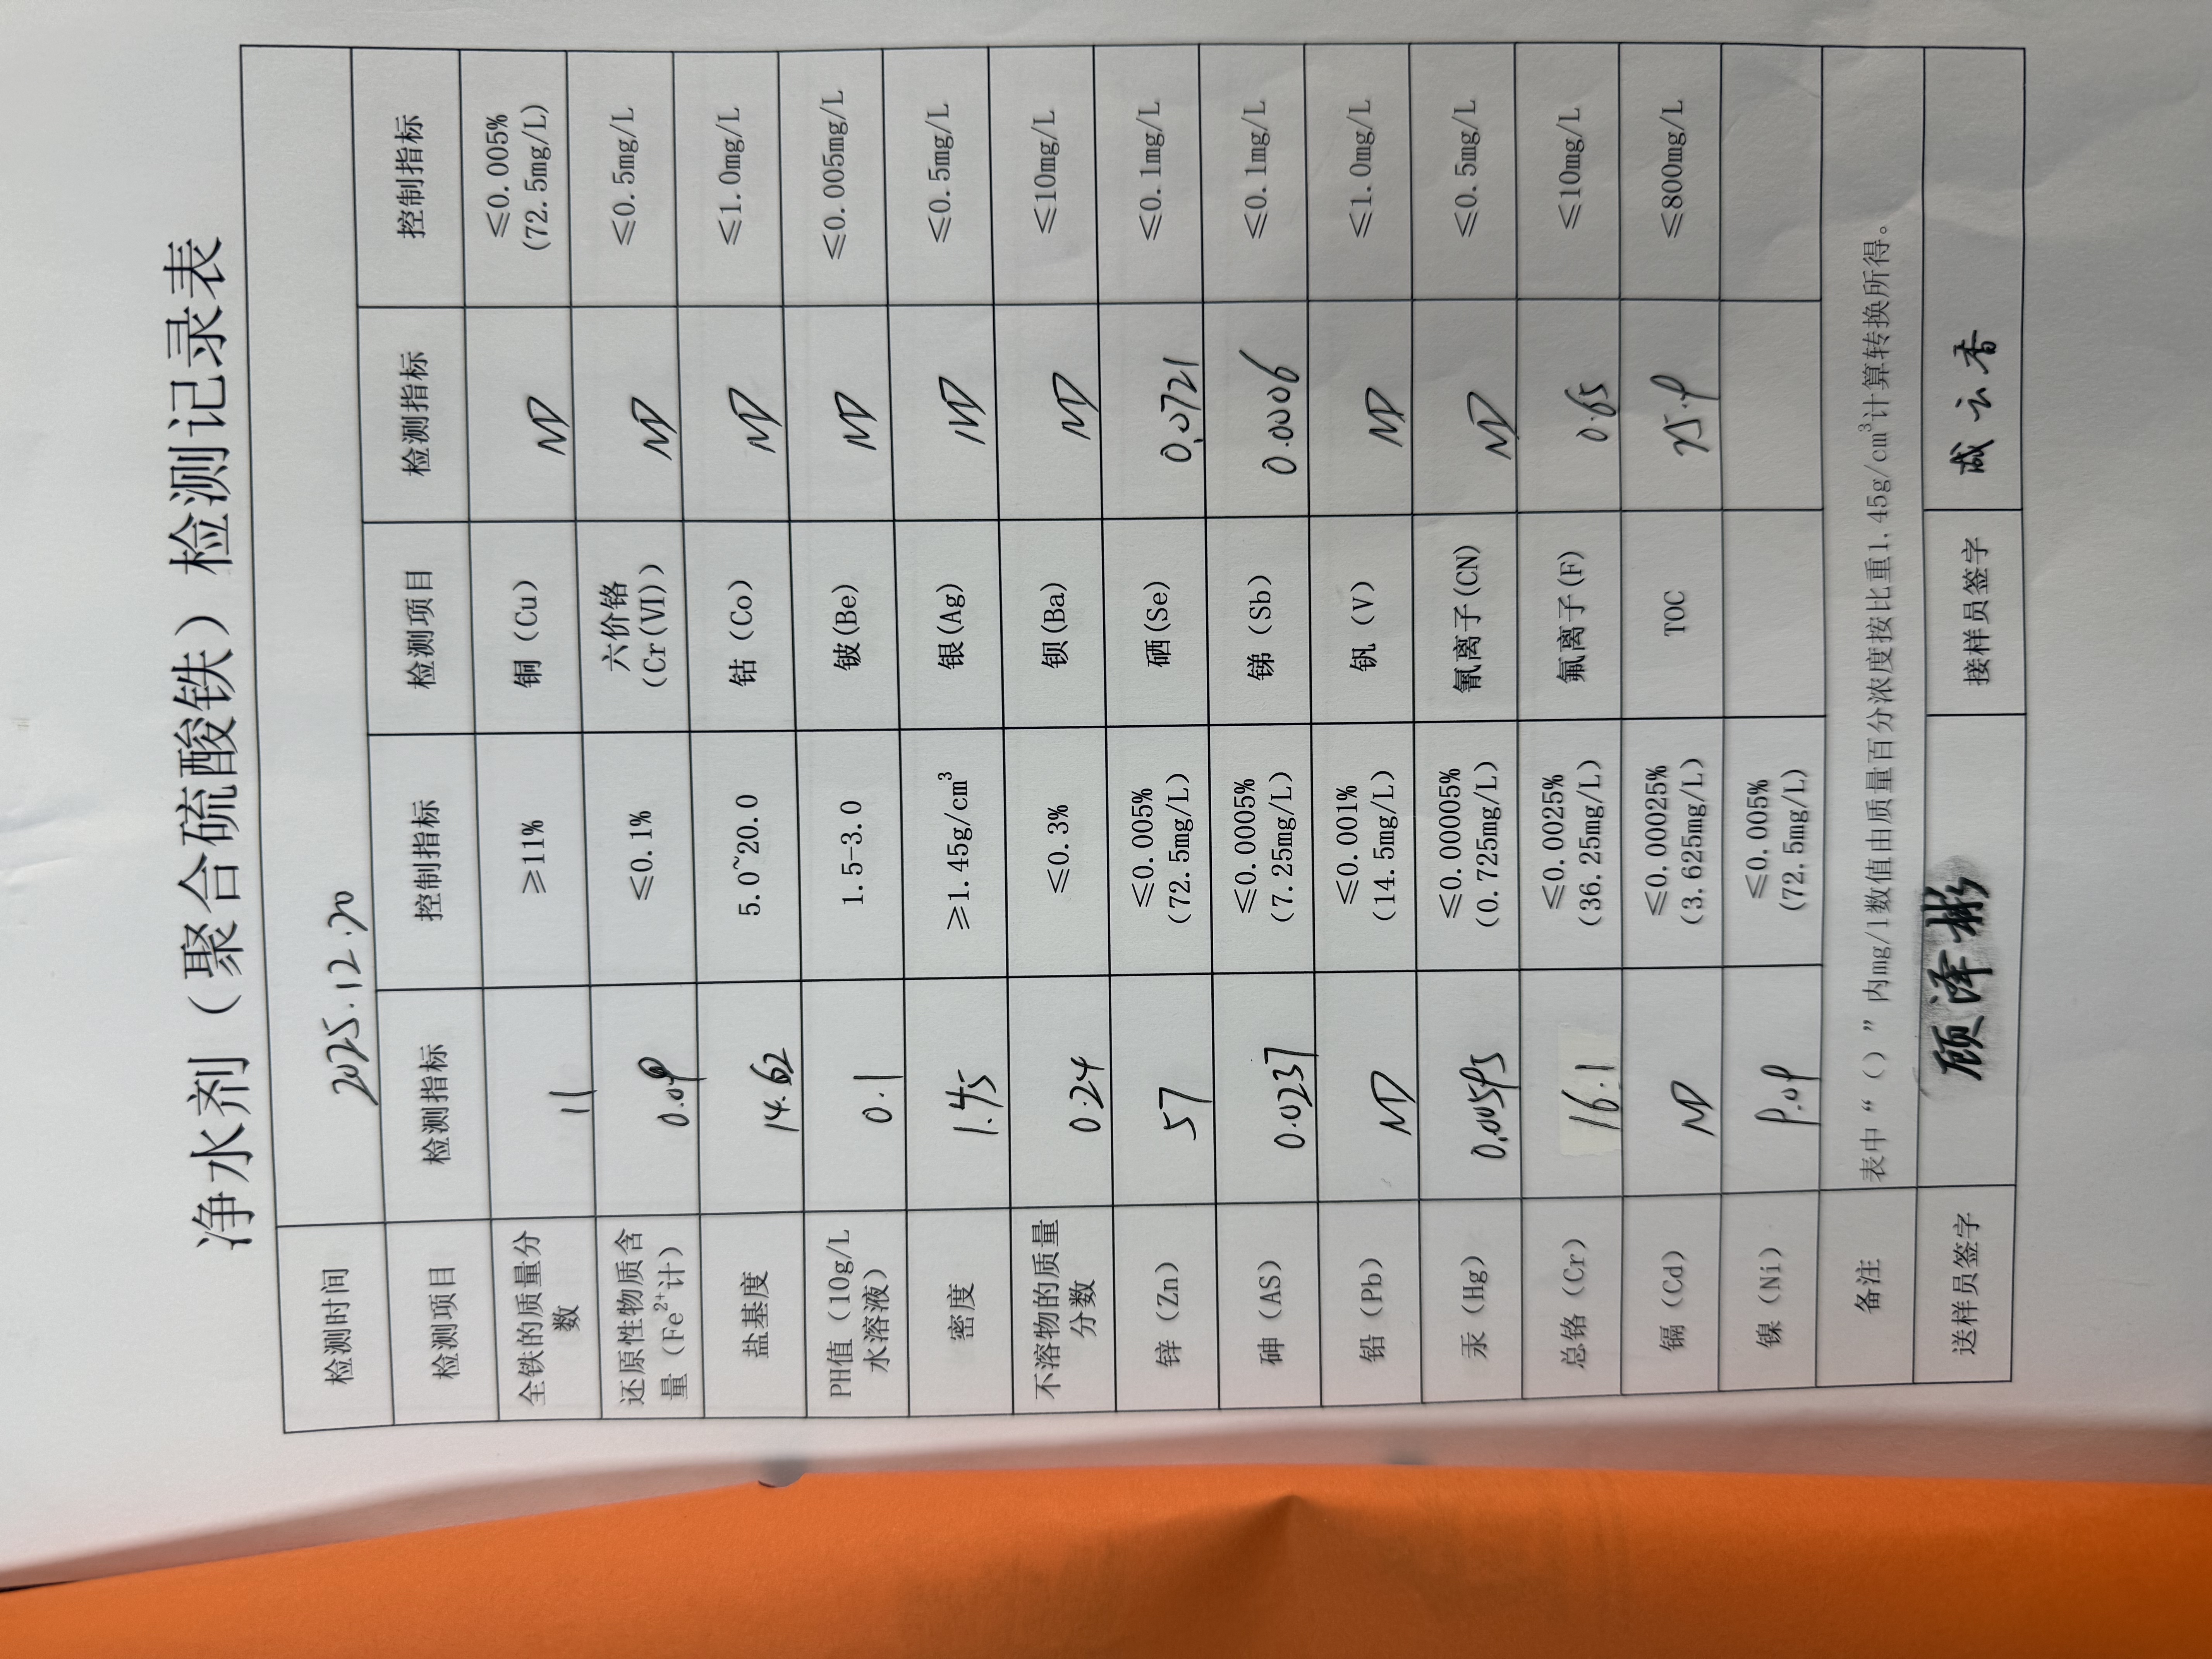 净水剂（聚合硫酸铁）检测记录表
检测时间 2025.12.20
检测项目 检测指标 控制指标 检测项目 检测指标 控制指标
全铁的质量分数 11 ≥11% 铜（Cu） ND ≤0.005% (72.5mg/L)
还原性物质含量（Fe²⁺计） 0.09 ≤0.1% 六价铬（Cr(VI)） ND ≤0.5mg/L
盐基度 14.62 5.0~20.0 钴（Co） ND ≤1.0mg/L
PH值（10g/L水溶液） 0.1 1.5-3.0 铍(Be) ND ≤0.005mg/L
密度 1.45 ≥1.45g/cm³ 银(Ag) ND ≤0.5mg/L
不溶物的质量分数 0.24 ≤0.3% 钡(Ba) ND ≤10mg/L
锌（Zn） 57 ≤0.005% (72.5mg/L) 硒(Se) 0.0721 ≤0.1mg/L
砷（AS） 0.0237 ≤0.0005% (7.25mg/L) 锑（Sb） 0.0006 ≤0.1mg/L
铅（Pb） ND ≤0.001% (14.5mg/L) 钒（V） ND ≤1.0mg/L
汞（Hg） 0.00595 ≤0.00005% (0.725mg/L) 氰离子(CN) ND ≤0.5mg/L
总铬（Cr） 16.1 ≤0.0025% (36.25mg/L) 氟离子(F) 0.65 ≤10mg/L
镉（Cd） ND ≤0.00025% (3.625mg/L) TOC 25.9 ≤800mg/L
镍（Ni） 9.09 ≤0.005% (72.5mg/L)
备注 表中“（）”内mg/l数值由质量百分浓度按比重1.45g/cm³计算转换所得。
送样员签字 顾泽彬 接样员签字 臧云香